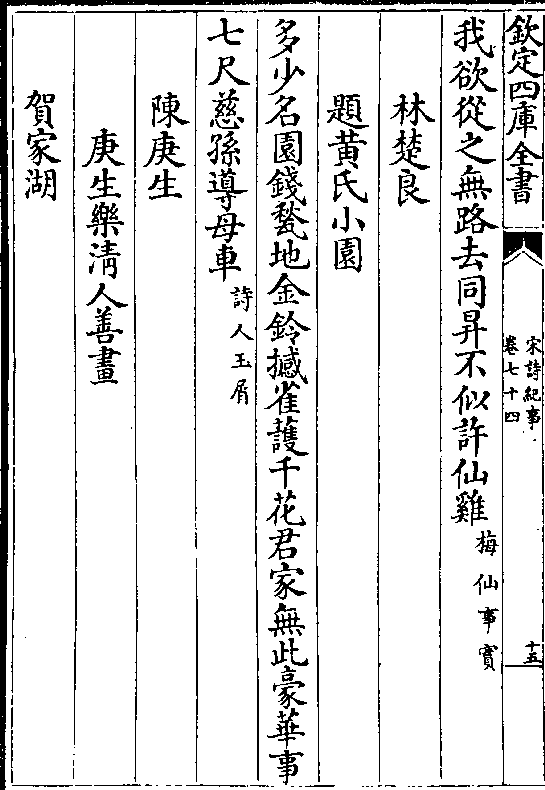 欽定四庫全書
宋詩紀事
卷七十四
十五
我欲從之無路去同昇不似許仙雞梅仙事實
林楚良
題黃氏小園
多少名園錢甃地金鈴撼雀護千花君家無此豪華事
七尺慈孫導母車詩人玉屑
陳庚生
庚生樂清人善畫
賀家湖